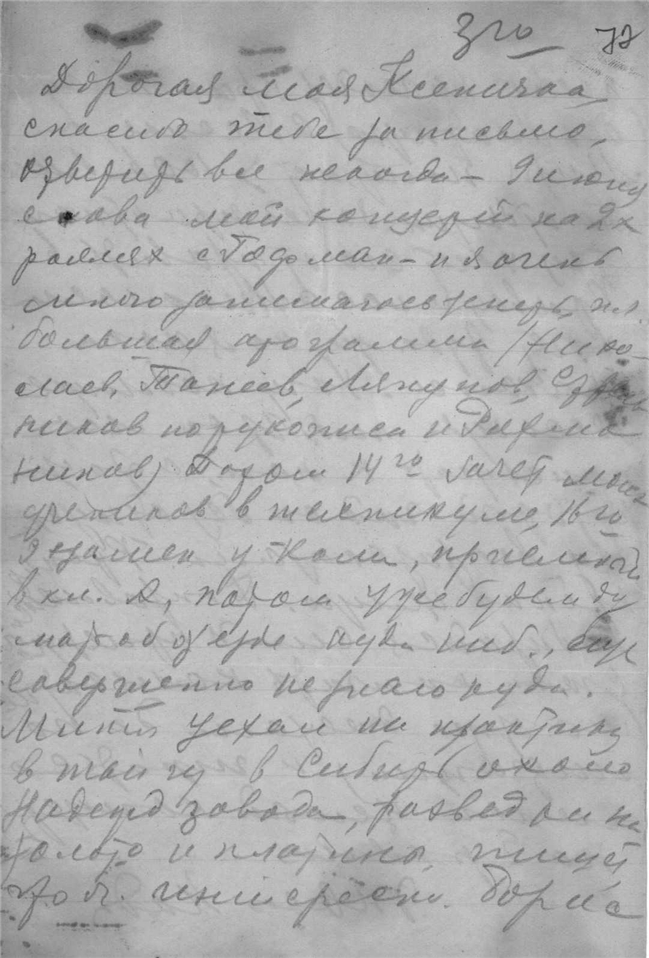 3го 72
Дорогая моя Ксеничка,
спасибо тебе за письмо,
ответить все некогда – 9 июня
снова мой концерт на 2х
роялях с Гофман – и я очень
много занималась теперь, т.к.
большая программа (Нико-
лаев, Танеев, Ляпунов,
ников по рукописи и Рахма
нинов) Потом 14го зачет моих
учеников в техникуме, 16го
экзамен у Коли, приемный
в кл. А, потом уже будем ду
мать об отъезде куда ниб., еще
совершенно не знаю куда.
Митя уехал на практику
в тайгу в Сибирь около
Надежд завода, разведки на
золото и платину, пишет
что оч. интересно. Борис